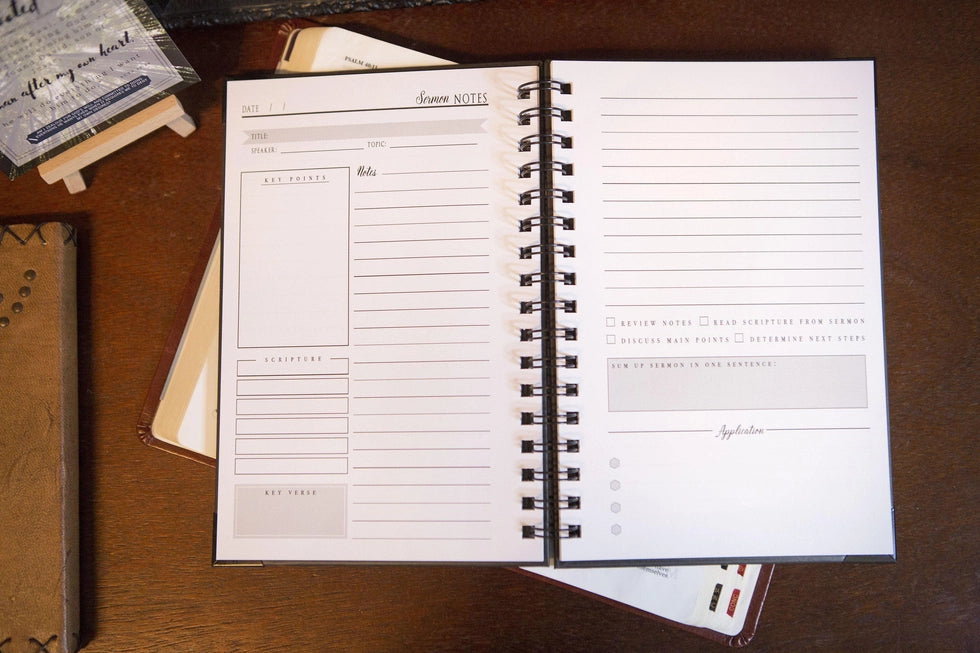 after my own heart.
PSALM
Sermon NOTES
DATE / /
TITLE:
SPEAKER:
TOPIC:
KEY POINTS
Notes
SCRIPTURE
KEY VERSE
REVIEW NOTES READ SCRIPTURE FROM SERMON
DISCUSS MAIN POINTS DETERMINE NEXT STEPS
SUM UP SERMON IN ONE SENTENCE:
Application